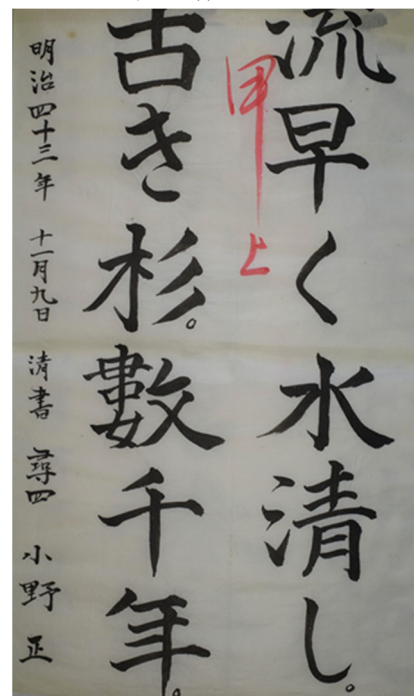 流早く水清し。
古き杉。數千年。
明治四十三年 十一月九日 清書 尋四 小野 正
甲上